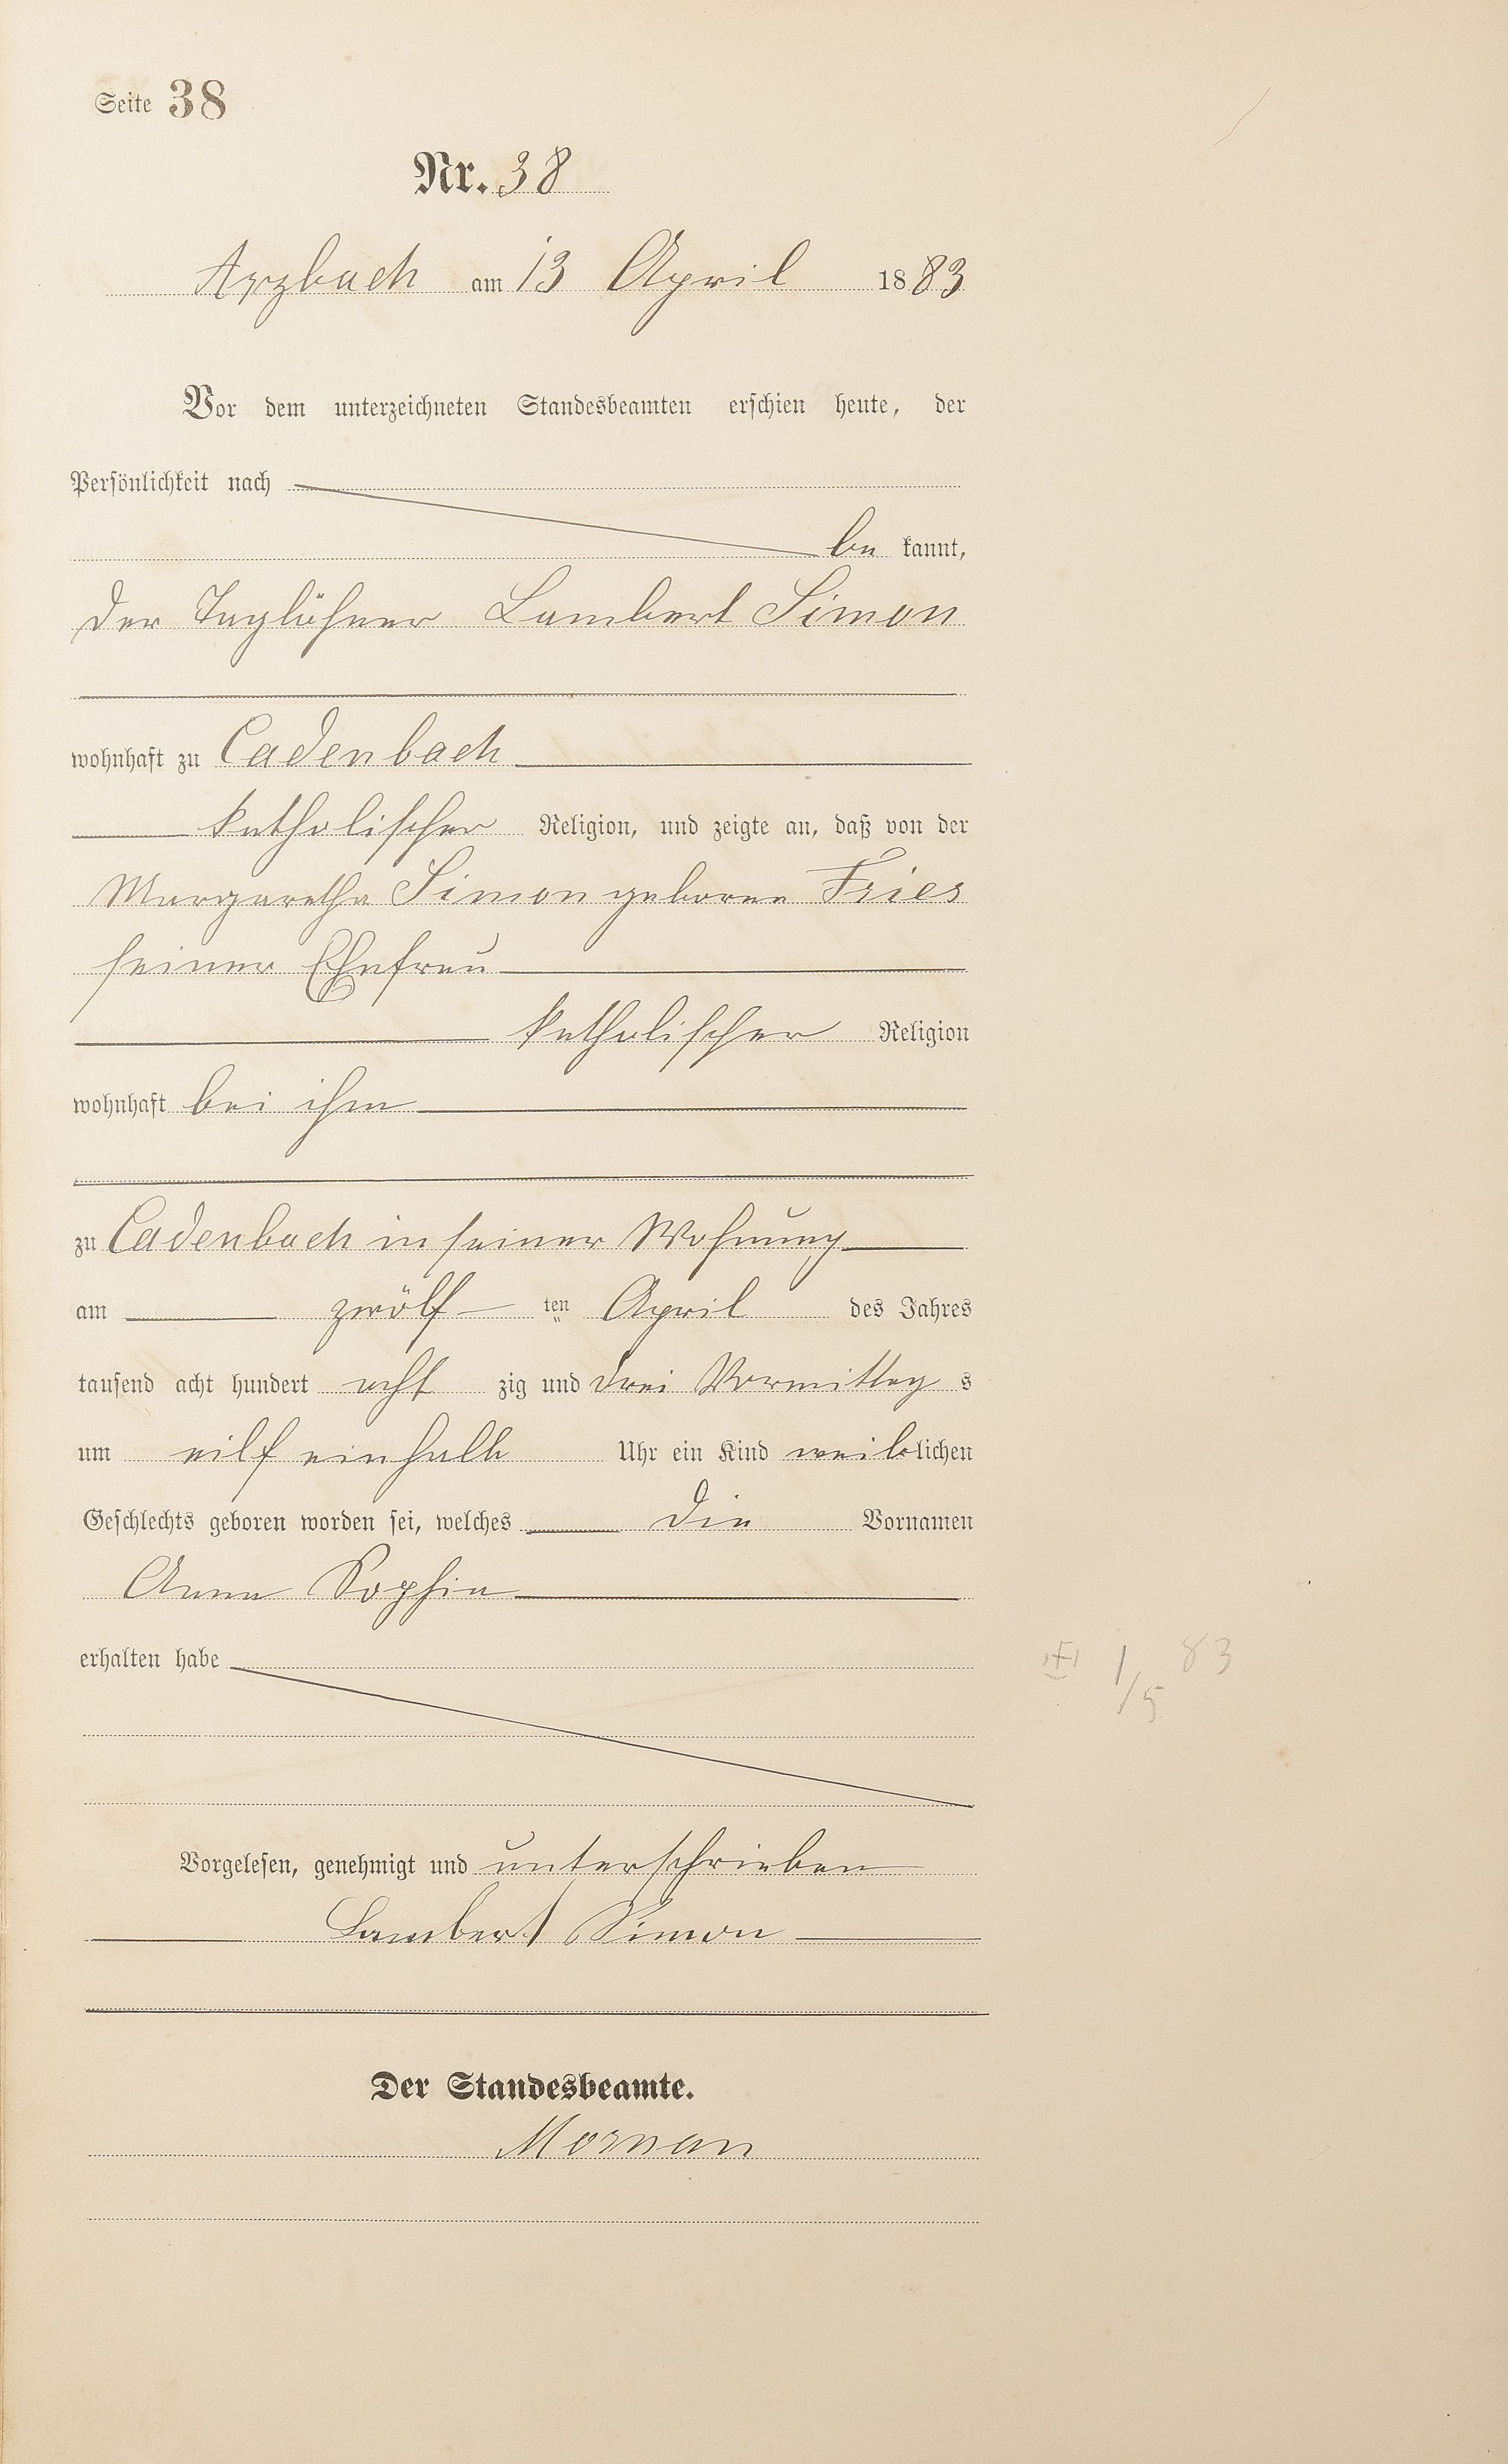 Seite 38
Nr. 38
Arzbach am 13 April 1883
Vor dem unterzeichneten Standesbeamten erschien heute, der
Persönlichkeit nach
be kannt,
der Taglöhner Lambert Simon
wohnhaft zu Cadenbach
katholischer Religion, und zeigte an, daß von der
Margaretha Simon geborne Fries
seiner Ehefrau
katholischer Religion
wohnhaft bei ihm
zu Cadenbach in seiner Wohnung
am zwölf ten April des Jahres
tausend acht hundert acht zig und drei Vormittag s
um eilf einhalb Uhr ein Kind weiblichen
Geschlechts geboren worden sei, welches die Vornamen
Anna Sophia
erhalten habe
1/5 83
Vorgelesen, genehmigt und unterschrieben
Lambert Simon
Der Standesbeamte.